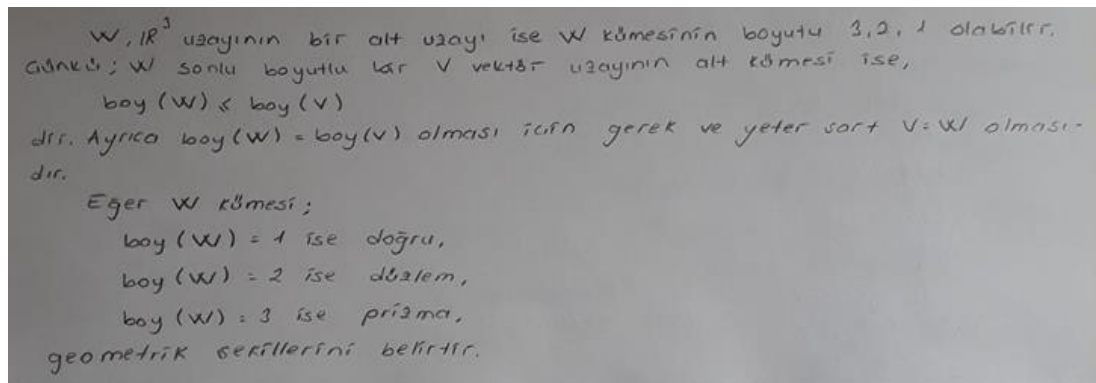 W, IR³ uzayının bir alt uzayı ise W kümesinin boyutu 3, 2, 1 olabilir.
Çünkü; W sonlu boyutlu bir V vektör uzayının alt kümesi ise,
boy (W) ≤ boy (V)
dir. Ayrıca boy (W) = boy (V) olması için gerek ve yeter şart V = W olması-
dır.
Eğer W kümesi;
boy (W) = 1 ise doğru,
boy (W) = 2 ise düzlem,
boy (W) = 3 ise prizma,
geometrik şekillerini belirtir.